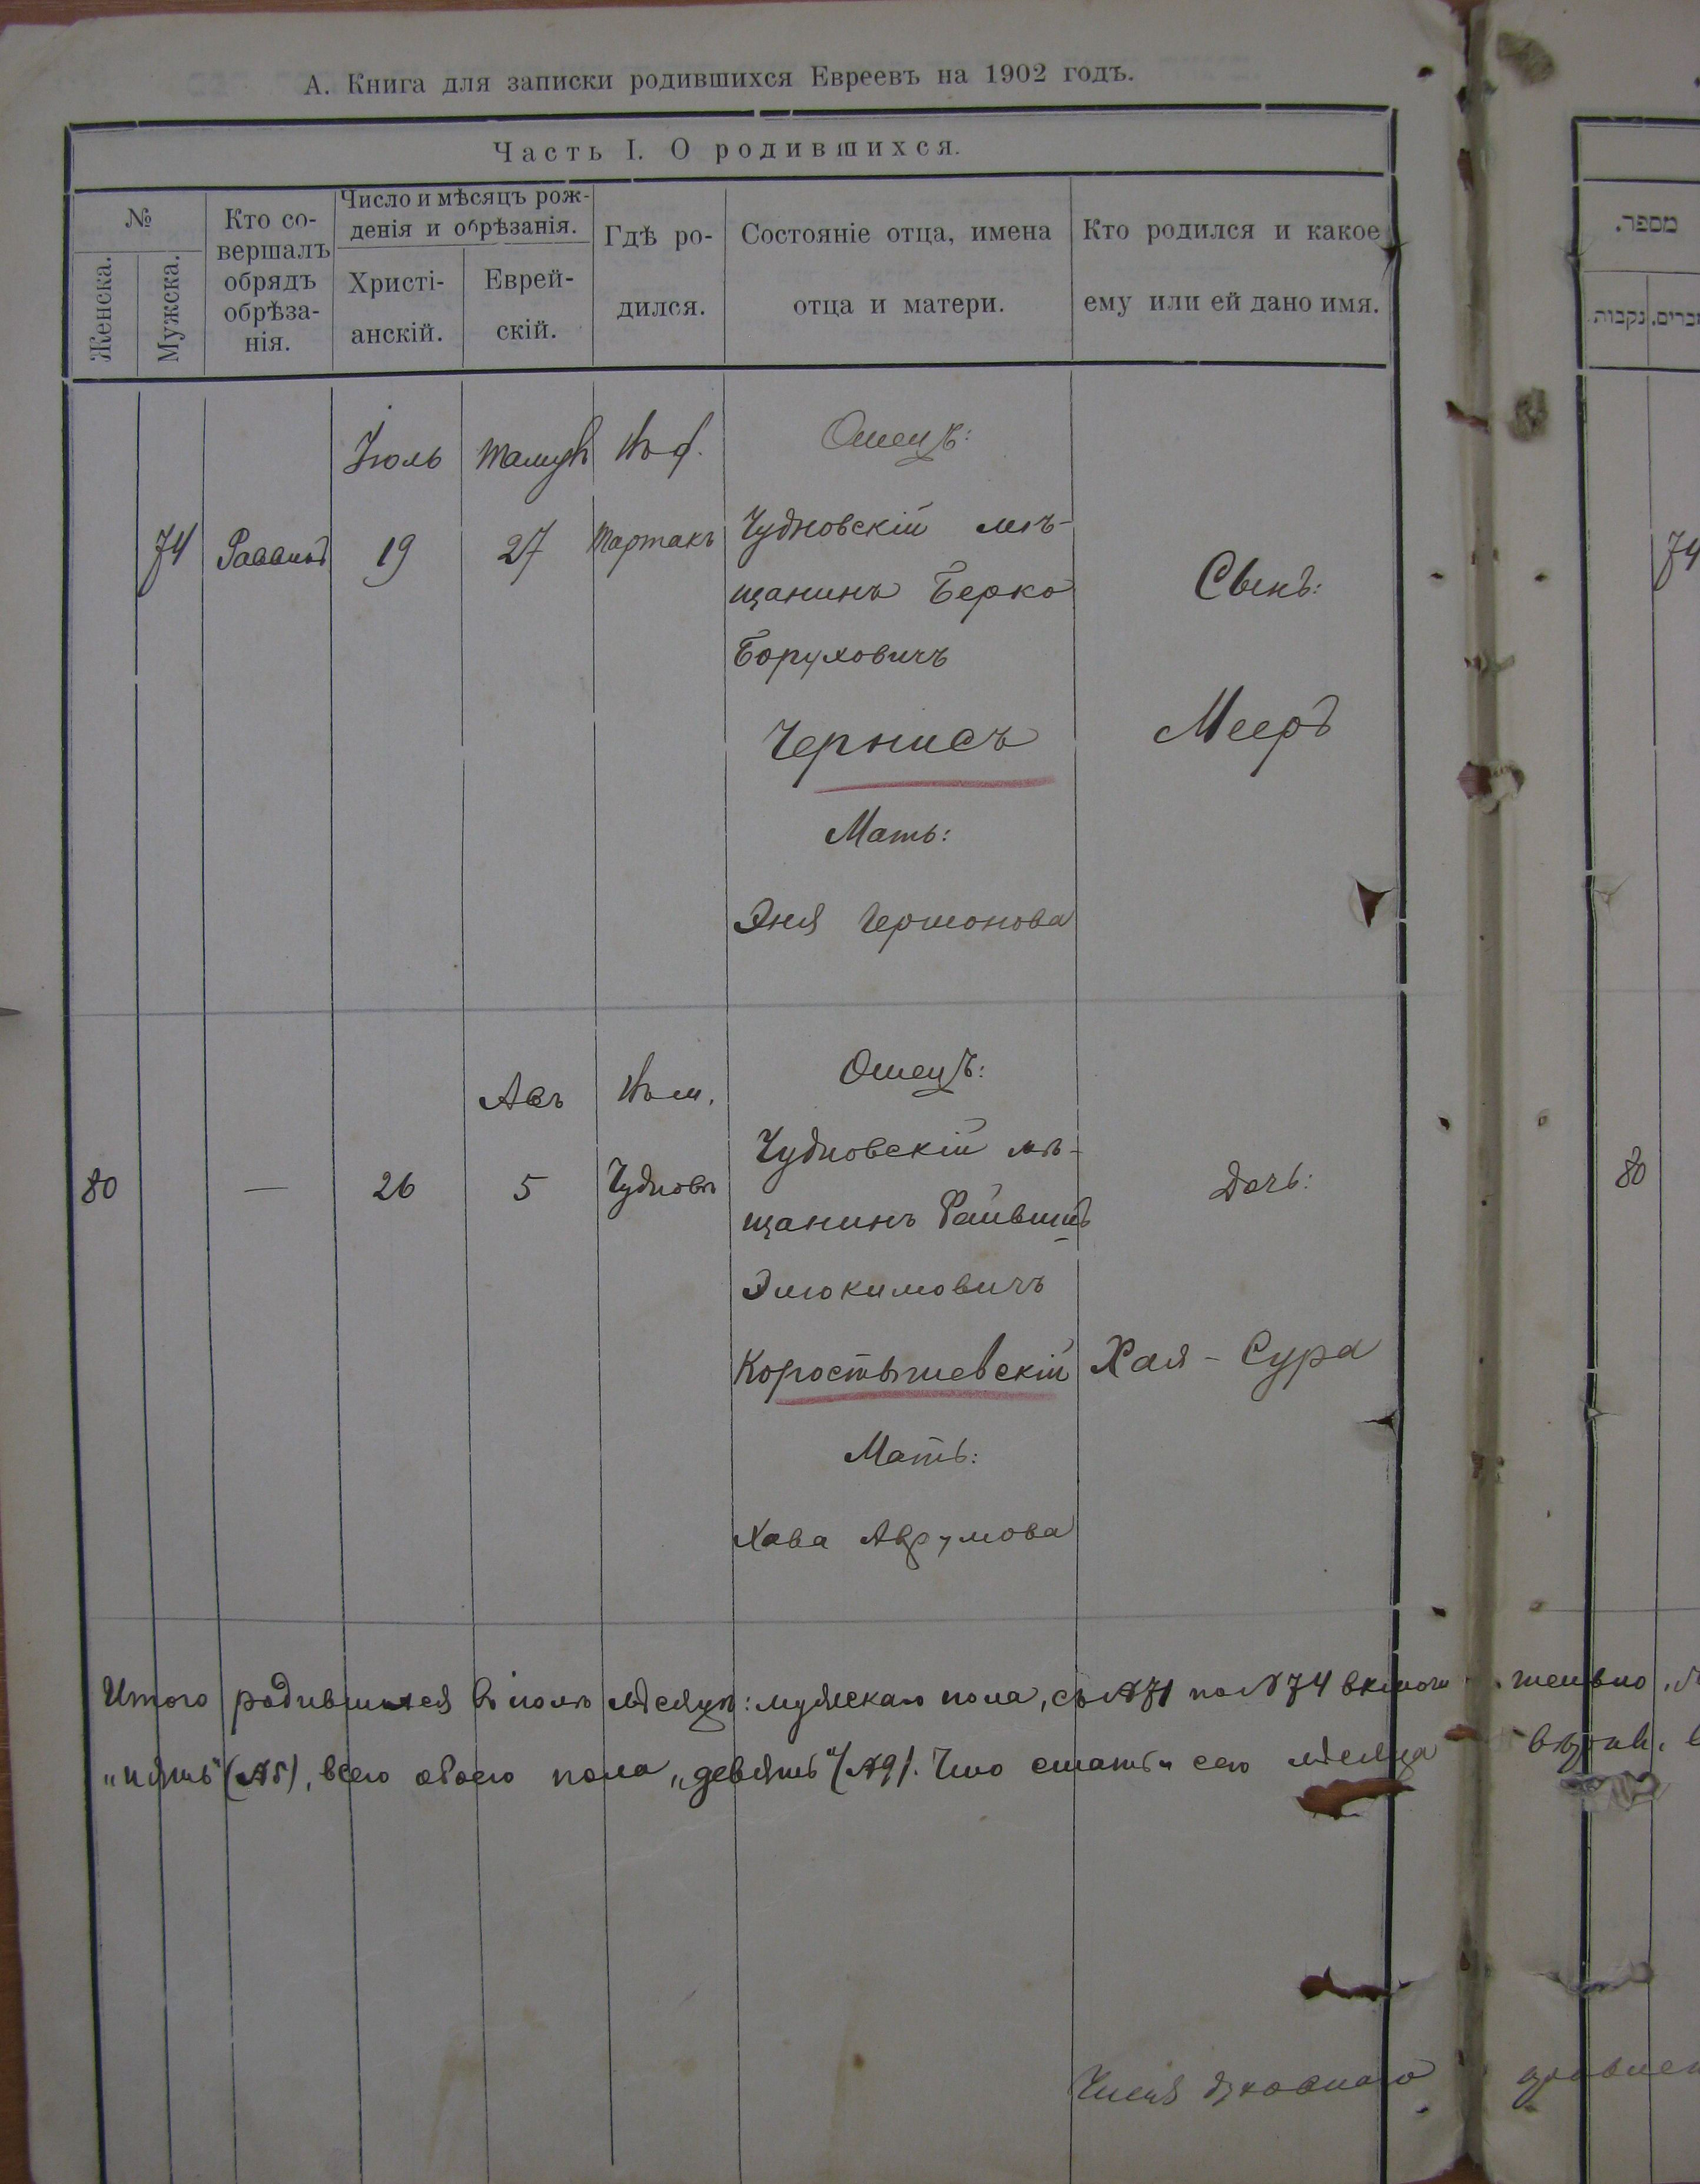 А. Книга для записки родившихся Евреевъ на 1902 годъ.
Часть I. О родившихся.
№
Женска.
Мужска.
Кто со-
вершалъ
обрядъ
обрѣза-
нія.
Число и мѣсяцъ рож-
денія и обрѣзанія.
Христі-
анскій.
Еврей-
скій.
Гдѣ ро-
дился.
Состояніе отца, имена
отца и матери.
Кто родился и какое
ему или ей дано имя.
מספר.
נקבות
זכרים.
74
Раввинъ
Іюль
19
Тамузъ
27
Въ ф.
Тартакъ
Отецъ:
Чудновскій мѣ-
щанинъ Берко
Боруховичъ
Чернисъ
Мать:
Эня Гершонова
Сынъ:
Мееръ
74
80
—
26
Авъ
5
Въ м.
Чудновъ
Отецъ:
Чудновскій мѣ-
щанинъ Файвишъ
Элюкимовичъ
Коростышевскій
Мать:
Хава Аврумова
Дочь:
Хая-Сура
80
Итого родившихся въ іюлѣ мѣсяцѣ: мужскаго пола, съ №71 по №74 включительно,
„пять" (№5), всего обоего пола „девять" (№9). Что статьи сего мѣсяца вѣрны,
Члены духовнаго правлен